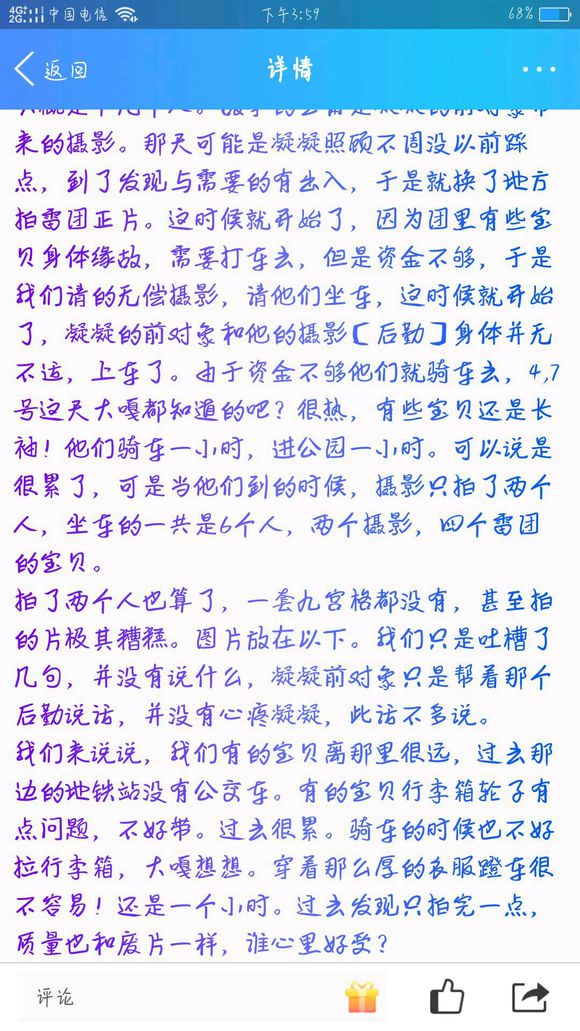 4G+ 2G 中国电信 下午3:59 68%
返回 详情
来的摄影。那天可能是凝凝照顾不周没以前踩
点，到了发现与需要的有出入，于是就换了地方
拍雷团正片。这时候就开始了，因为团里有些宝
贝身体缘故，需要打车去，但是资金不够，于是
我们请的无偿摄影，请他们坐车，这时候就开始
了，凝凝的前对象和他的摄影【后勤】身体并无
不适，上车了。由于资金不够他们就骑车去，4,7
号这天大嘎都知道的吧？很热，有些宝贝还是长
袖！他们骑车一小时，进公园一小时。可以说是
很累了，可是当他们到的时候，摄影只拍了两个
人，坐车的一共是6个人，两个摄影，四个雷团
的宝贝。
拍了两个人也算了，一套九宫格都没有，甚至拍
的片极其糟糕。图片放在以下。我们只是吐槽了
几句，并没有说什么，凝凝前对象只是帮着那个
后勤说话，并没有心疼凝凝，此话不多说。
我们来说说，我们有的宝贝离那里很远，过去那
边的地铁站没有公交车。有的宝贝行李箱轮子有
点问题，不好带。过去很累。骑车的时候也不好
拉行李箱，大嘎想想。穿着那么厚的衣服蹬车很
不容易！还是一个小时。过去发现只拍完一点，
质量也和废片一样，谁心里好受？
评论